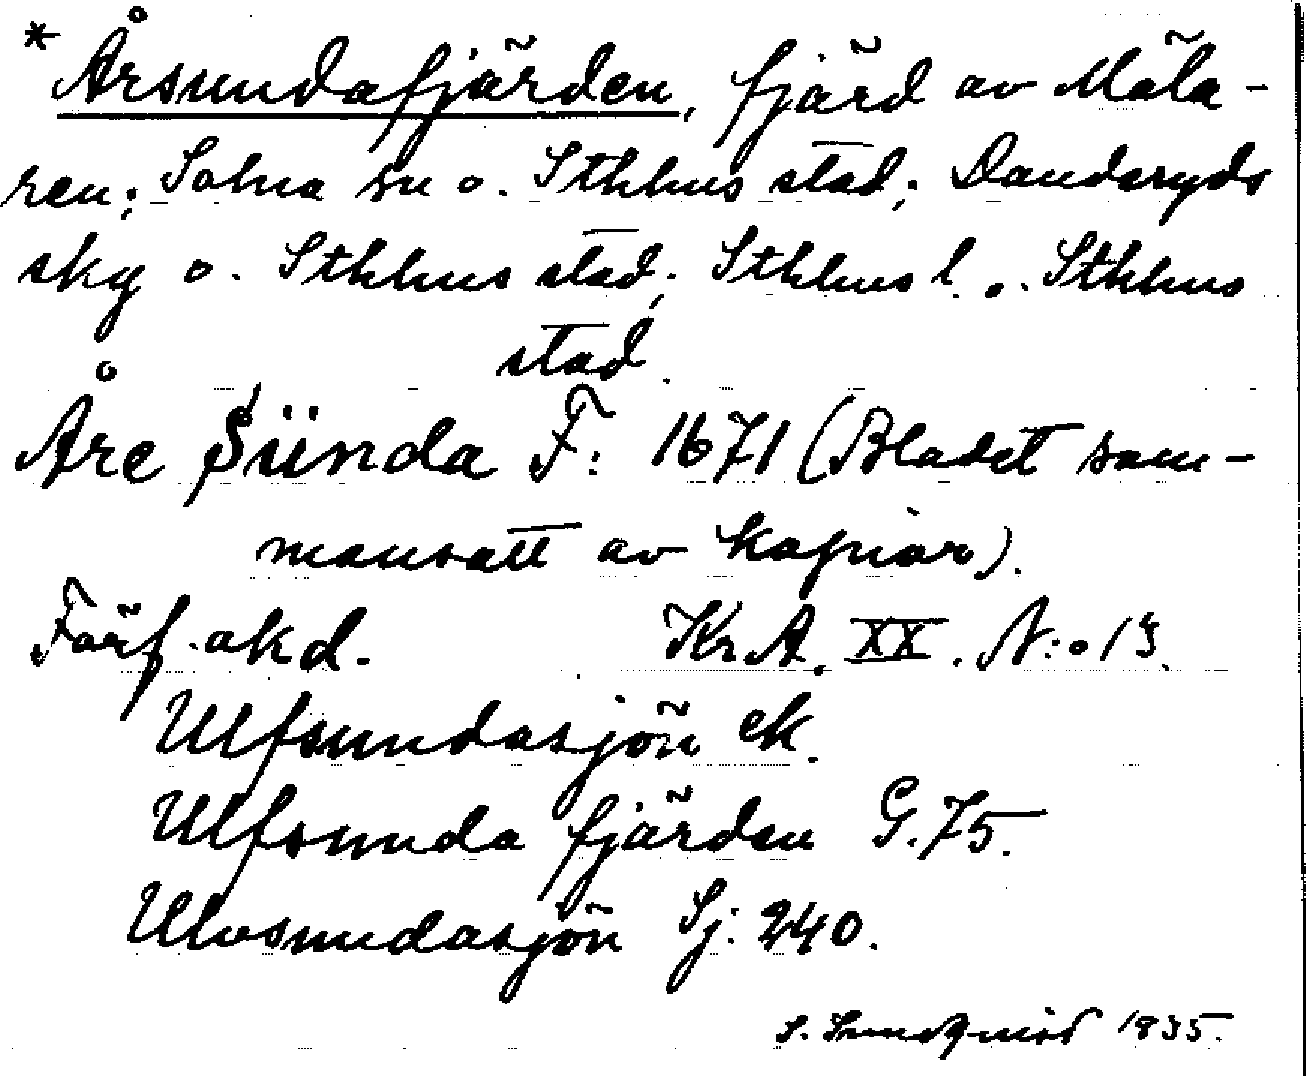 * Årsundafjärden, fjärd av Mäla-
ren; Solna sn o. Sthlms stad; Danderyds
skg o. Sthlms stad; Sthlms l. o. Sthlms
stad.
Åre Sünda F: 1671 (Bladet sam-
mansatt av kopior).
Förf. okd. Kr.A. XX. N:o 13.
Ulfsundasjön ek.
Ulfsunda fjärden G. 75.
Ulvsundasjön Sj: 240.
S. Lundqvist 1935.